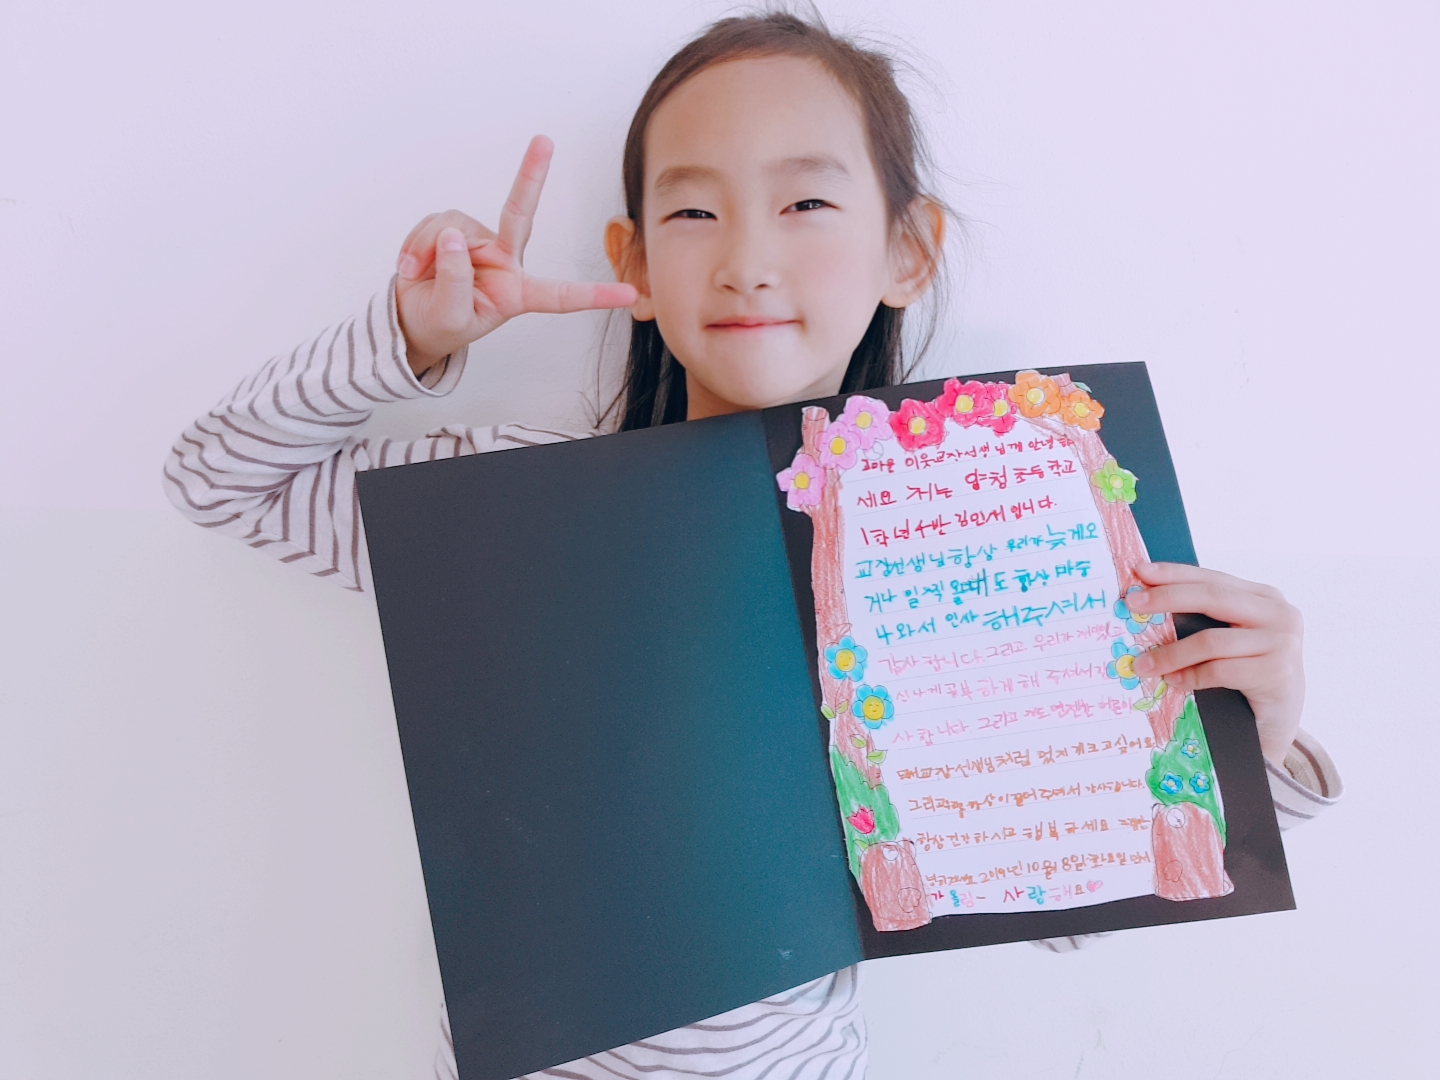 고마운 이웃교장선생님께 안녕하
세요 저는 양청초등학교
1학년 4반 김인서입니다.
교장선생님 항상 우리가 늦게오
거나 일찍 올때도 항상 마중
나와서 인사 해주셔서
감사합니다. 그리고 우리가 재밌고
신나게 공부 하게 해 주셔서 감
사합니다 그리고 저도 멋진 어린이
돼 교장선생님처럼 멋지게 크고싶어요
그리고 항상 이끌어 주셔서 감사합니다.
항상 건강하시고 행복하세요
2019년 10월 8일 화요일 인서
가 올림- 사랑해요